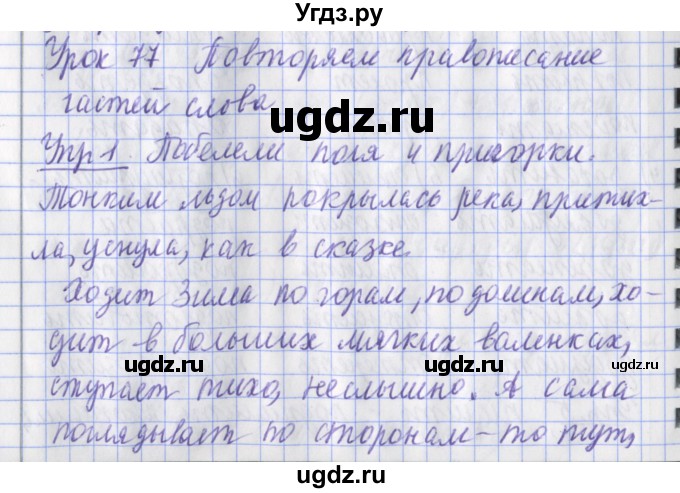 Угдз.ру
Урок 77 Повторяем правописание
частей слова
ugdz.ru
Упр 1. Побелели поля и пригорки.
Тонким льдом покрылась река, притих-
ла, уснула, как в сказке.
Ходит Зима по горам, по долинам, хо-
дит в больших мягких валенках,
ugdz.ru ugdz.ru
ступает тихо, неслышно. А сама
поглядывает по сторонам - то тут,
ugdz.ru